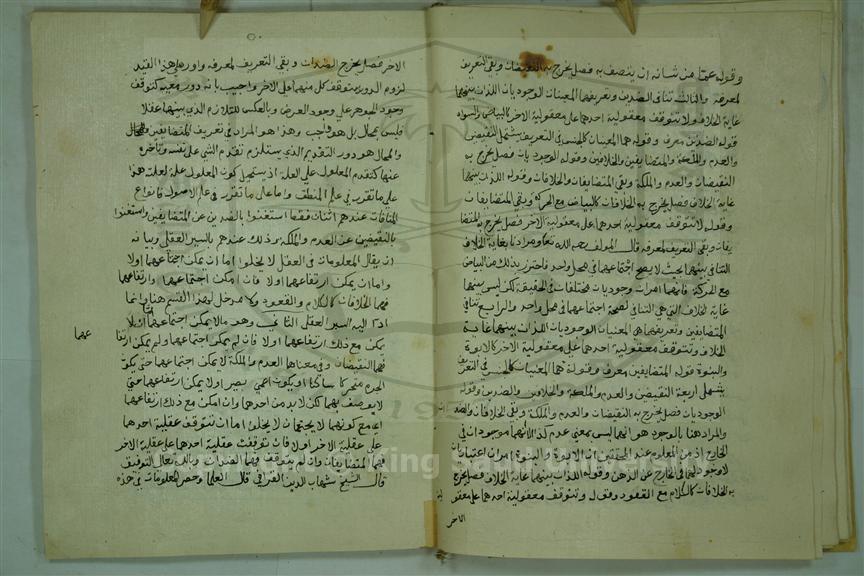 وقوله عما من شانه ان يتصف به فصل يخرج به النقيضان وبقي التعريف
لمعرفه والثالث تنافي الضدين وتعريفهما المعنيان الوجوديان اللذان بينهما
غاية الخلاف ولا تتوقف معقولية احدهما على معقولية الاخر كالبياض والسواد
قوله الضدين معرف وقوله هما المعنيان كالجنس في التعريف يشمل النقيضين
والعدم والملكة والمتضايفين والخلافين وقوله الوجوديان فصل يخرج به
النقيضان والعدم والملكة وبقي المتضايفان والخلافان وقوله اللذان بينهما
غاية الخلاف فصل يخرج به الخلافان كالبياض مع الحركة وبقي المتضايفان
وقوله لا تتوقف معقولية احدهما على معقولية الاخر فصل يخرج به المتضا
يفان وبقي التعريف لمعرفه قال المولف رحمه الله تعالى ومرادنا بغاية الخلاف
التنافي بينهما بحيث لا يصح اجتماعهما في محل واحد فاحترز بذلك من البياض
مع الحركة فانهما امران وجوديان مختلفان في الحقيقة لكن ليس بينهما
غاية الخلاف التي هي التنافي لصحة اجتماعهما في محل واحد والرابع تنافي
المتضايفين وتعريفهما هي المعنيان الوجوديان اللذان بينهما غاية
الخلاف وتتوقف معقولية احدهما على معقولية الاخر كالابوة
والبنوة قوله المتضايفين معرف وقوله هما المعنيان كالجنس في التعريف
يشمل اربعة النقيضين والعدم والملكة والخلافين والضدين وقوله
الوجوديان فصل يخرج به النقيضان والعدم والملكة وبقي الخلافان والضد
ان والمراد هنا بالوجود هو انهما ليس بمعنى عدم كذا لانهما موجودان في
الخارج اذ من المعلوم عند المحققين ان الابوة والبنوة امران اعتباريان
لا وجود لهما في الخارج عن الذهن وقوله اللذان بينهما غاية الخلاف فصل يخرج
به الخلافان كالكلام مع القعود وقوله وتتوقف معقولية احدهما على معقو
لية
الاخر
الاخر فصل يخرج الضدان وبقي التعريف لمعرفه واورد على هذا القيد
لزوم الدور بتوقف كل منهما على الاخر واجيب بانه دور معية كتوقف
وجود الجوهر على وجود العرض وبالعكس للتلازم الذي بينهما عقلا
فليس بمحال بل هو واجب وهذا هو المراد في تعريف المتضايفين والمحال
والمحال هو دور التقديم الذي يستلزم تقدم الشي على نفسه وتاخره
عنها كتقدم المعلول على العلة اذ يستحيل كون المعلول علة لعلته هذا
على ما تقرر في علم المنطق واما على ما تقرر في علم الاصول فانواع
المنافات عندهم اثنان فقط استغنوا بالضدين عن المتضايفين واستغنوا
بالنقيضين عن العدم والملكة وذلك عندهم بالسبر العقلي وبيانه
ان يقال المعلومات في العقل لا يخلوا اما ان يمكن اجتماعهما اولا
واما ان يمكن ارتفاعهما اولا فان امكن اجتماعهما وارتفاعهما
فهما الخلافان كالكلام والقعود ولا مدخل لهذا القسم هنا وانما
ادى اليه السبر العقلي الثاني وهو مالا يمكن اجتماعهما فلا
يمكن مع ذلك ارتفاعهما اولا فان لم يمكن اجتماعهما ولم يمكن ارتفا
عهما
فهما النقيضان وفي معناهما العدم والملكة لا يمكن اجتماعهما حتى يكون
الجرم متحركا ساكنا او يكون اعمى بصير ولا يمكن ارتفاعهما حتى
لا يوصف بهما لكن لا بد من احدهما وان امكن مع ذلك ارتفاعهما
اي مع كونهما لا يجتمعان لا يخلوا اما ان تتوقف عقلية احدهما
على عقلية الاخر اولا فان توقفت عقلية احدهما على عقلية الاخر
فهما المتضايفان وان لم يتوقف فهما الضدان وبالله تعالى التوفيق
قال الشيخ شهاب الدين القرافي قال العلما وحصر المعلومات في هذه